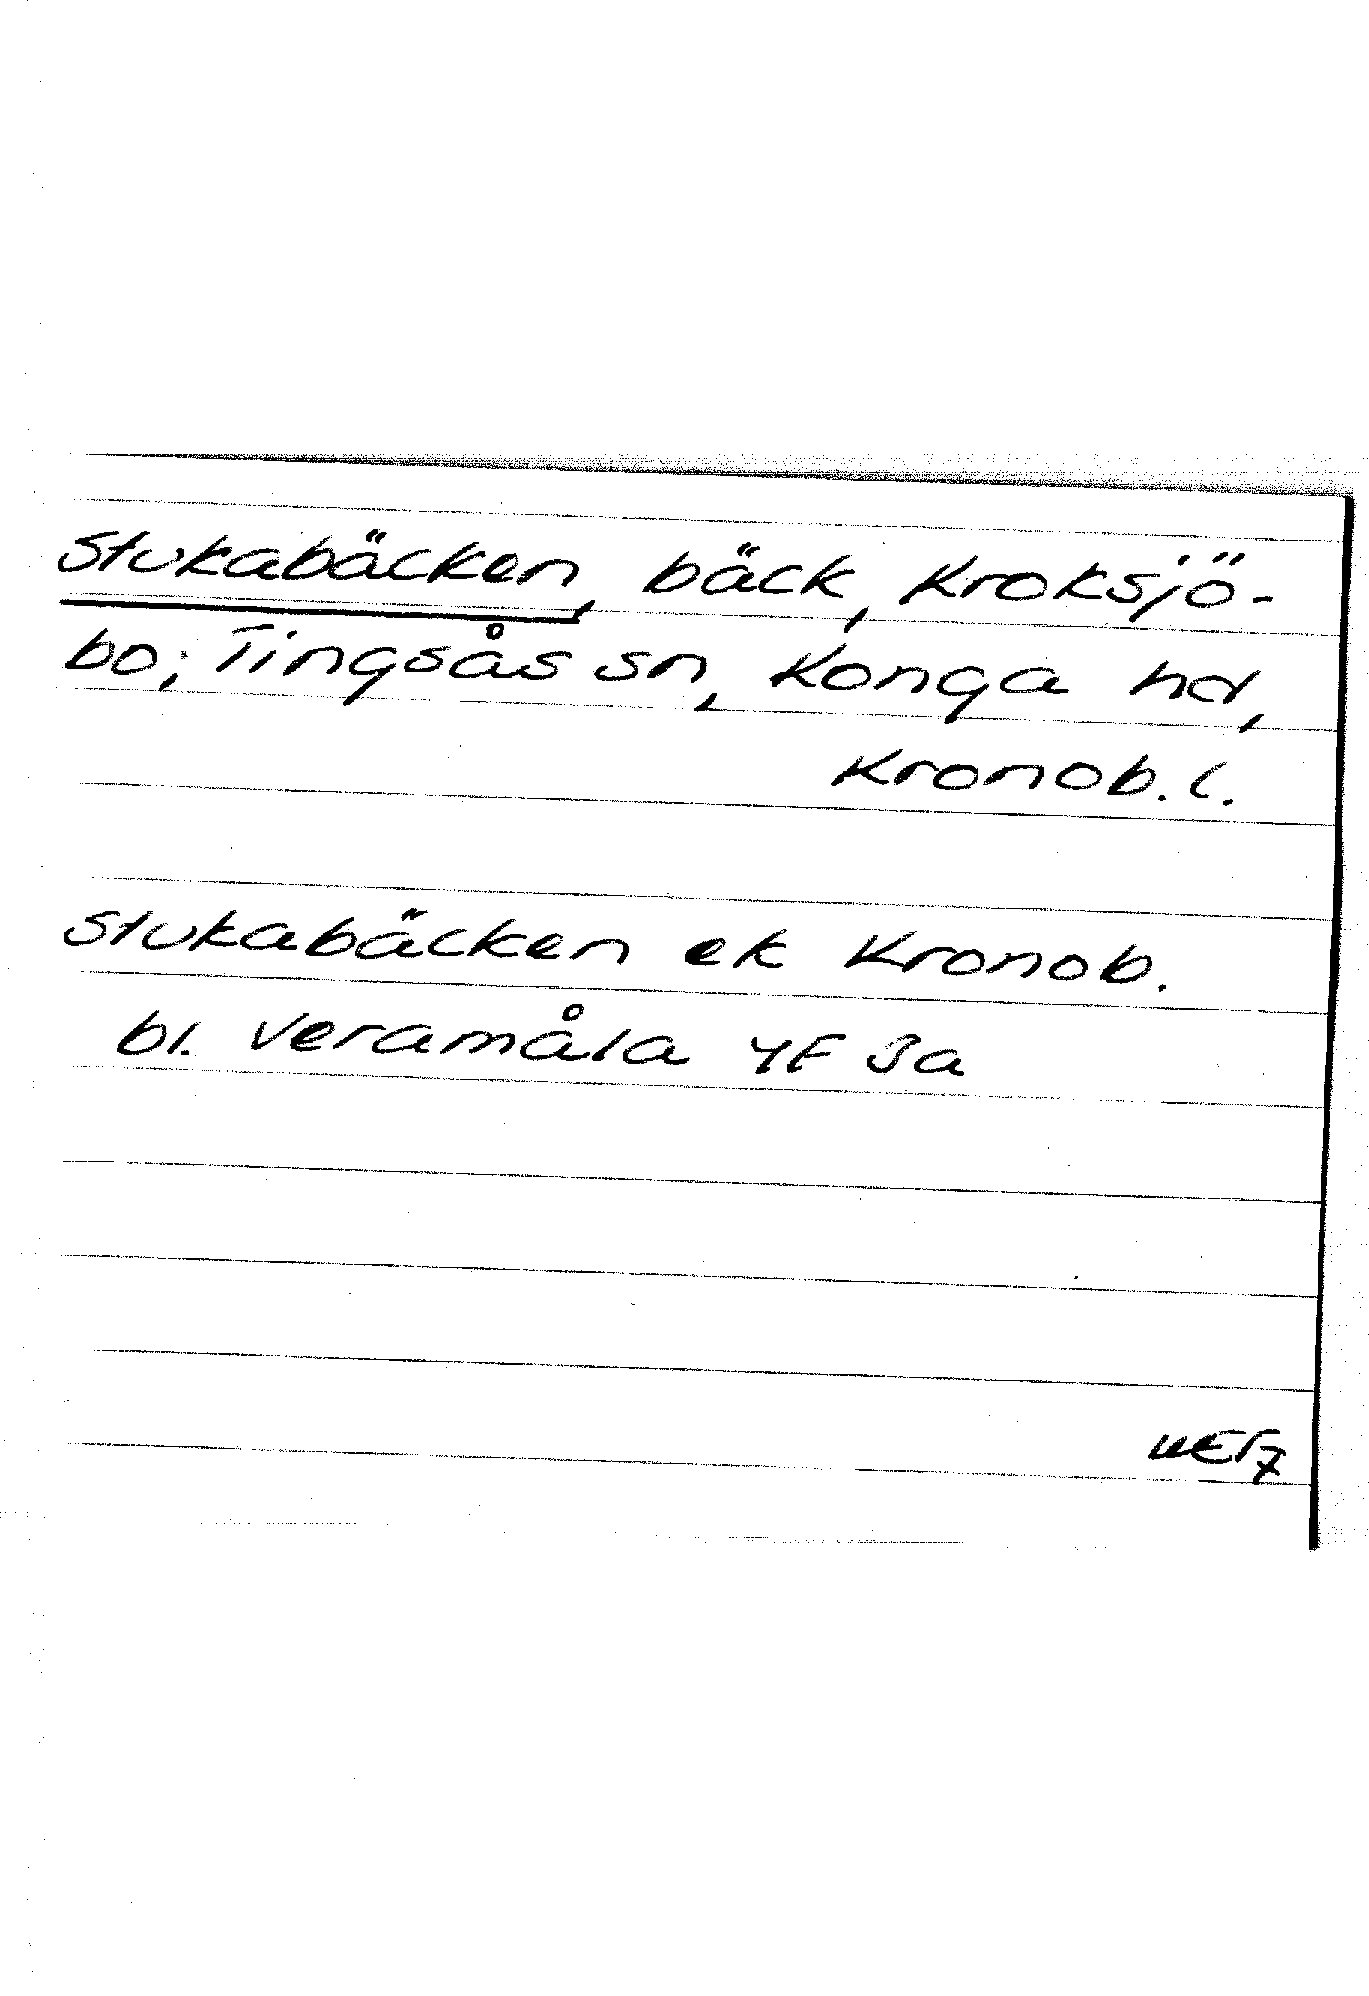 Stukabäcken, bäck, Kroksjö-
bo; Tingsås sn, Konga hd,
Kronob. l.
Stukabäcken ek Kronob.
bl. Veramåla 4F 3a